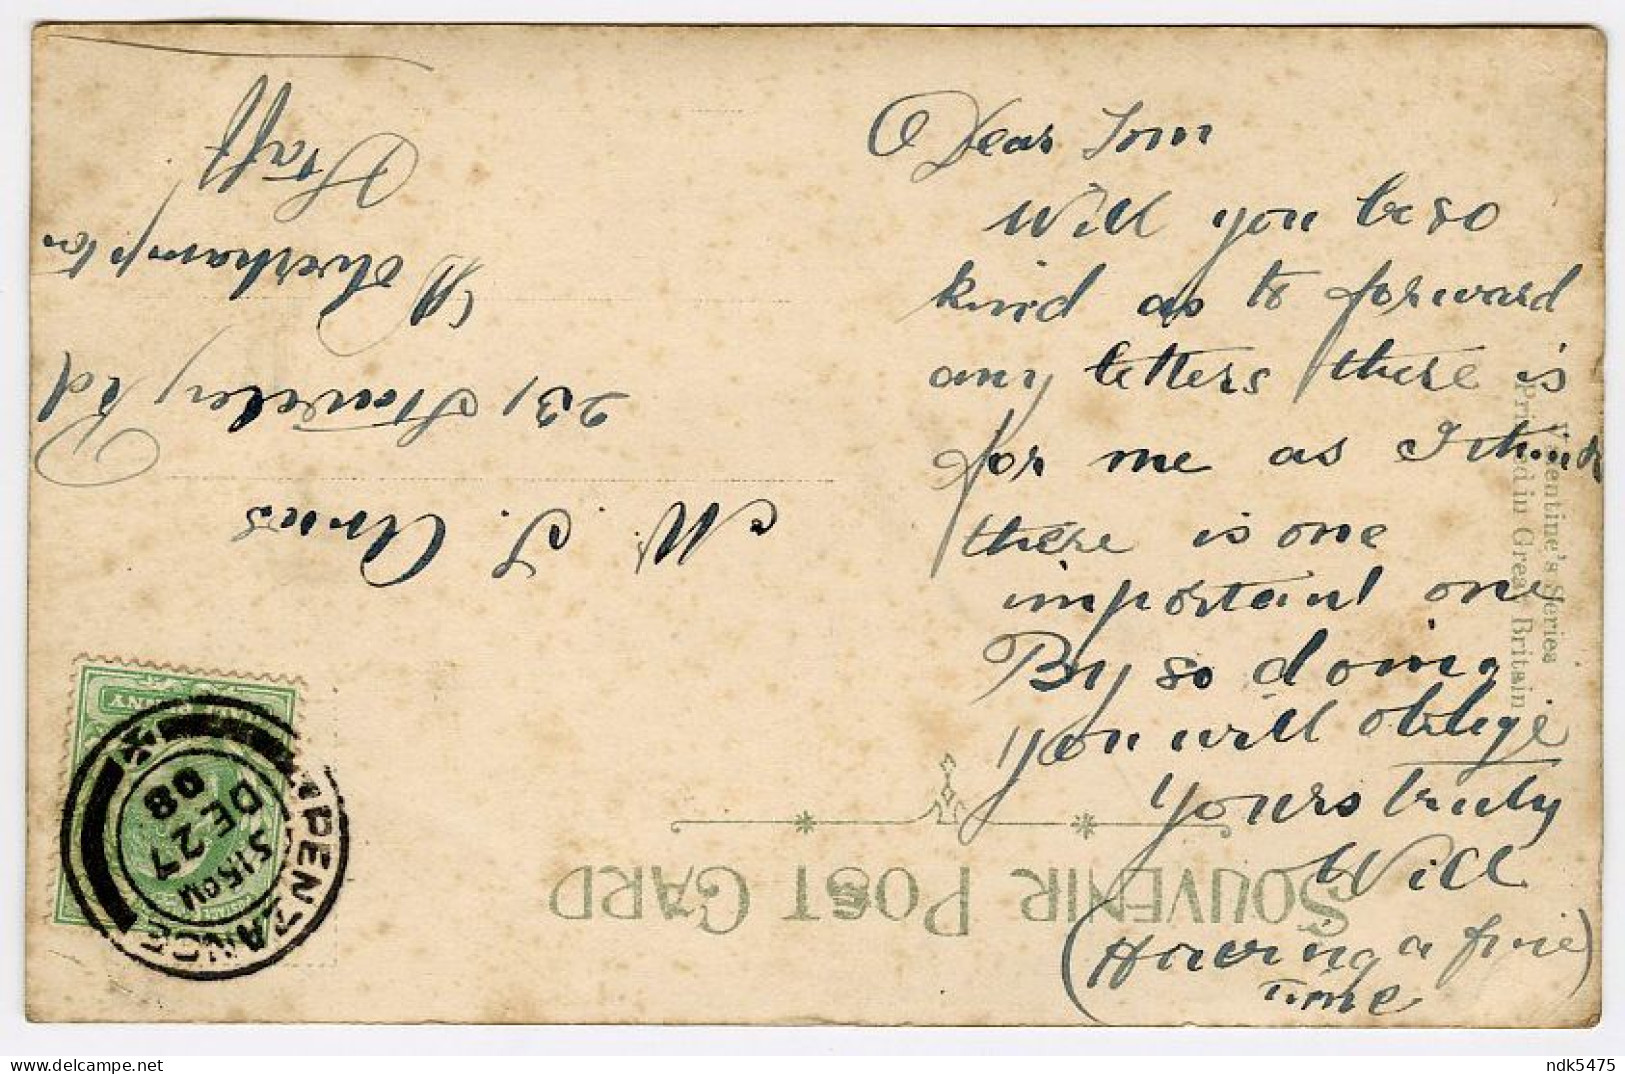 Dear Tom
Will you be so
kind as to forward
any letters there is
for me as I think
there is one
important one
By so doing
you will oblige
Yours truly
Will
(Having a fine
time)
SOUVENIR POST CARD
Valentine's Series
Printed in Great Britain
M. T.
231 Staveley Rd
Wolverhampton
Staff
PENZANCE
5 15 PM
DE 27
08
ndk5475